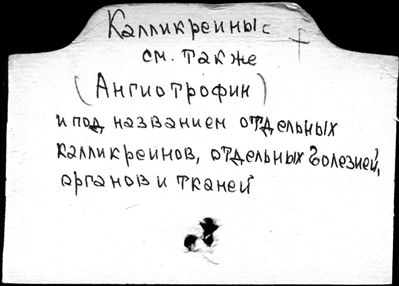 Калликреины:
см. также
(Ангиотрофин)
и под названием отдельных
калликреинов, отдельных болезней,
органов и тканей